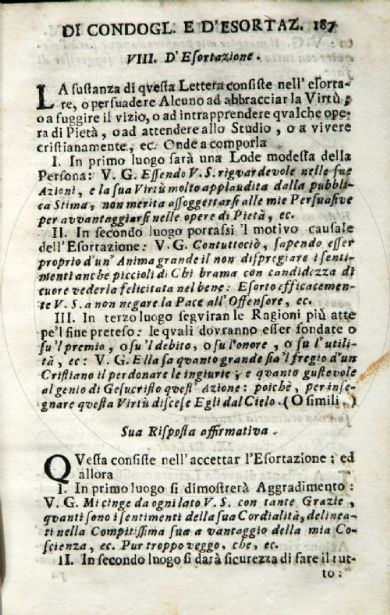 DI CONDOGL. E D'ESORTAZ. 187
VIII. D'Esortazione.
LA sustanza di questa Lettera consiste nell'esorta-
re, o persuadere Alcuno ad abbracciar la Virtù;
o a suggire il vizio, o ad intrapprendere qualche ope-
ra di Pietà, o ad attendere allo Studio, o a vivere
cristianamente, ec. Onde a comporla
I. In primo luogo sarà una Lode modesta della
Persona: V. G. Essendo V. S. rigvardevole nelle sue
Azioni, e la sua Virtù molto applaudita dalla pubbli-
ca Stima, non merita assoggettarsi alle mie Persuasive
per avvantaggiarsi nelle opere di Pietà, ec.
II. In secondo luogo porrassi 'l motivo causale
dell'Esortazione: V. G. Contuttociò, sapendo esser
proprio d'un' Anima grande il non dispregiare i senti-
menti anche piccioli di Chi brama con candidezza di
cuore vederla felicitata nel bene: Esorto efficacemen-
te V. S. a non negare la Pace all'Offensore, ec.
III. In terzo luogo segviran le Ragioni più atte
pe'l fine preteso: le quali dovranno esser fondate o
su'l premio, o su'l debito, o su l'onore, o su l'utili-
tà, ec: V. G. Ella sa quanto grande sia'l fregio d'un
Cristiano il perdonare le ingiurie; e quanto gustevole
al genio di Gesucristo quest' Azione: poichè, per inse-
gnare questa Virtù discese Egli dal Cielo. (O simili.)
Sua Risposta affirmativa.
QVesta consiste nell'accettar l'Esortazione; ed
allora
I. In primo luogo si dimostrerà Aggradimento:
V. G. Mi cinge da ogni lato V. S. con tante Grazie,
quanti sono i sentimenti della sua Cordialità, delinea-
ti nella Compitissima sua a vantaggio della mia Co-
scienza, ec. Pur troppo veggo, che, ec.
II. In secondo luogo si darà sicurezza di fare il tut-
to: